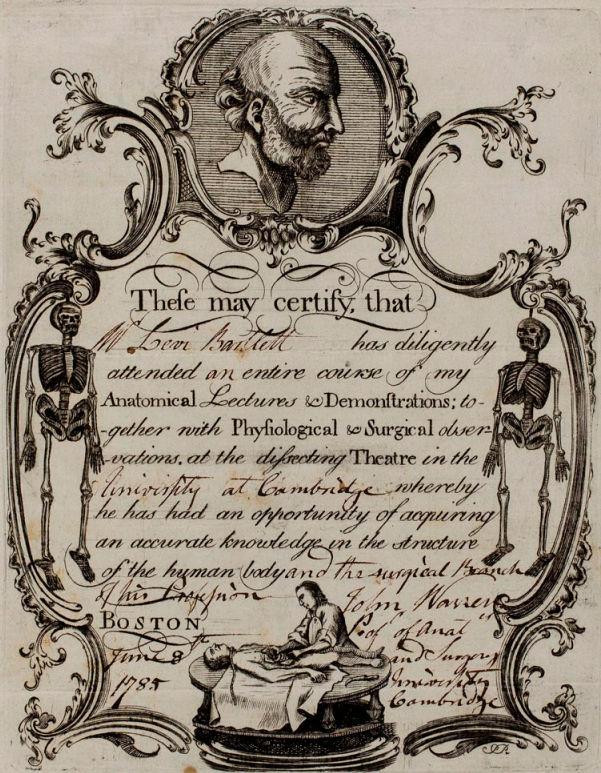 Theſe may certify, that
Mr Levi Bartlett has diligently
attended an entire course of my
Anatomical Lectures & Demonſtrations; to-
-gether with Phyſiological & Surgical obser-
-vations, at the diſsecting Theatre in the
University at Cambridge whereby
he has had an opportunity of acquiring
an accurate knowledge in the structure
of the human body and the surgical Branch
of his Profession
John Warren
BOSTON
Prof of Anat
June 8th
and Surgery
1785
University
Cambridge